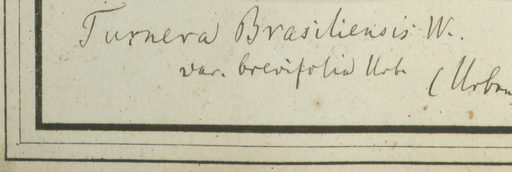 Turnera Brasiliensis W.
var. brevifolia Urb.
(Urban